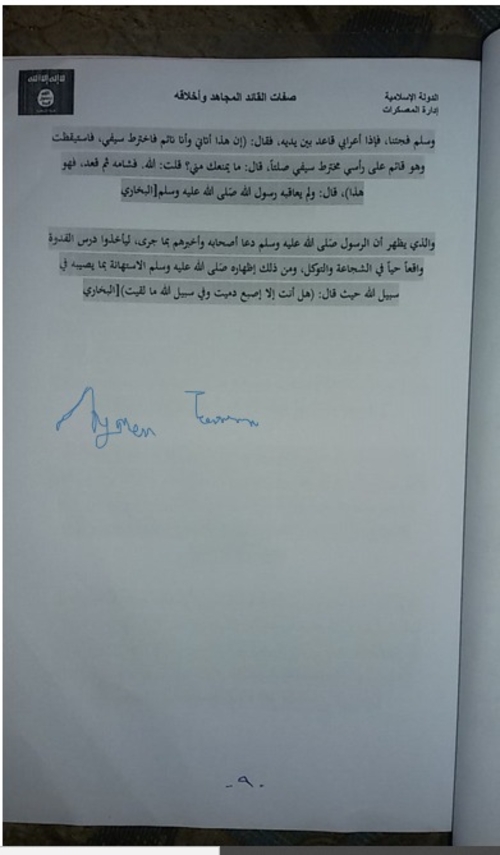 الدولة الإسلامية
إدارة المعسكرات
صفات القائد المجاهد وأخلاقه
لا إله إلا الله
وسلم فجئنا، فإذا أعرابي قاعد بين يديه، فقال: (إن هذا أتاني وأنا نائم فاخترط سيفي، فاستيقظت
وهو قائم على رأسي مخترط سيفي صلتاً، قال: ما يمنعك مني؟ قلت: الله. فشامه ثم قعد، فهو
هذا)، قال: ولم يعاقبه رسول الله صَلى الله عليه وسلم[البخاري
والذي يظهر أن الرسول صَلى الله عليه وسلم دعا أصحابه وأخبرهم بما جرى، ليأخذوا درس القدوة
واقعاً حياً في الشجاعة والتوكل، ومن ذلك إظهاره صَلى الله عليه وسلم الاستهانة بما يصيبه في
سبيل الله حيث قال: (هل أنت إلا إصبع دميت وفي سبيل الله ما لقيت)[البخاري
Aymen
- ٩ -